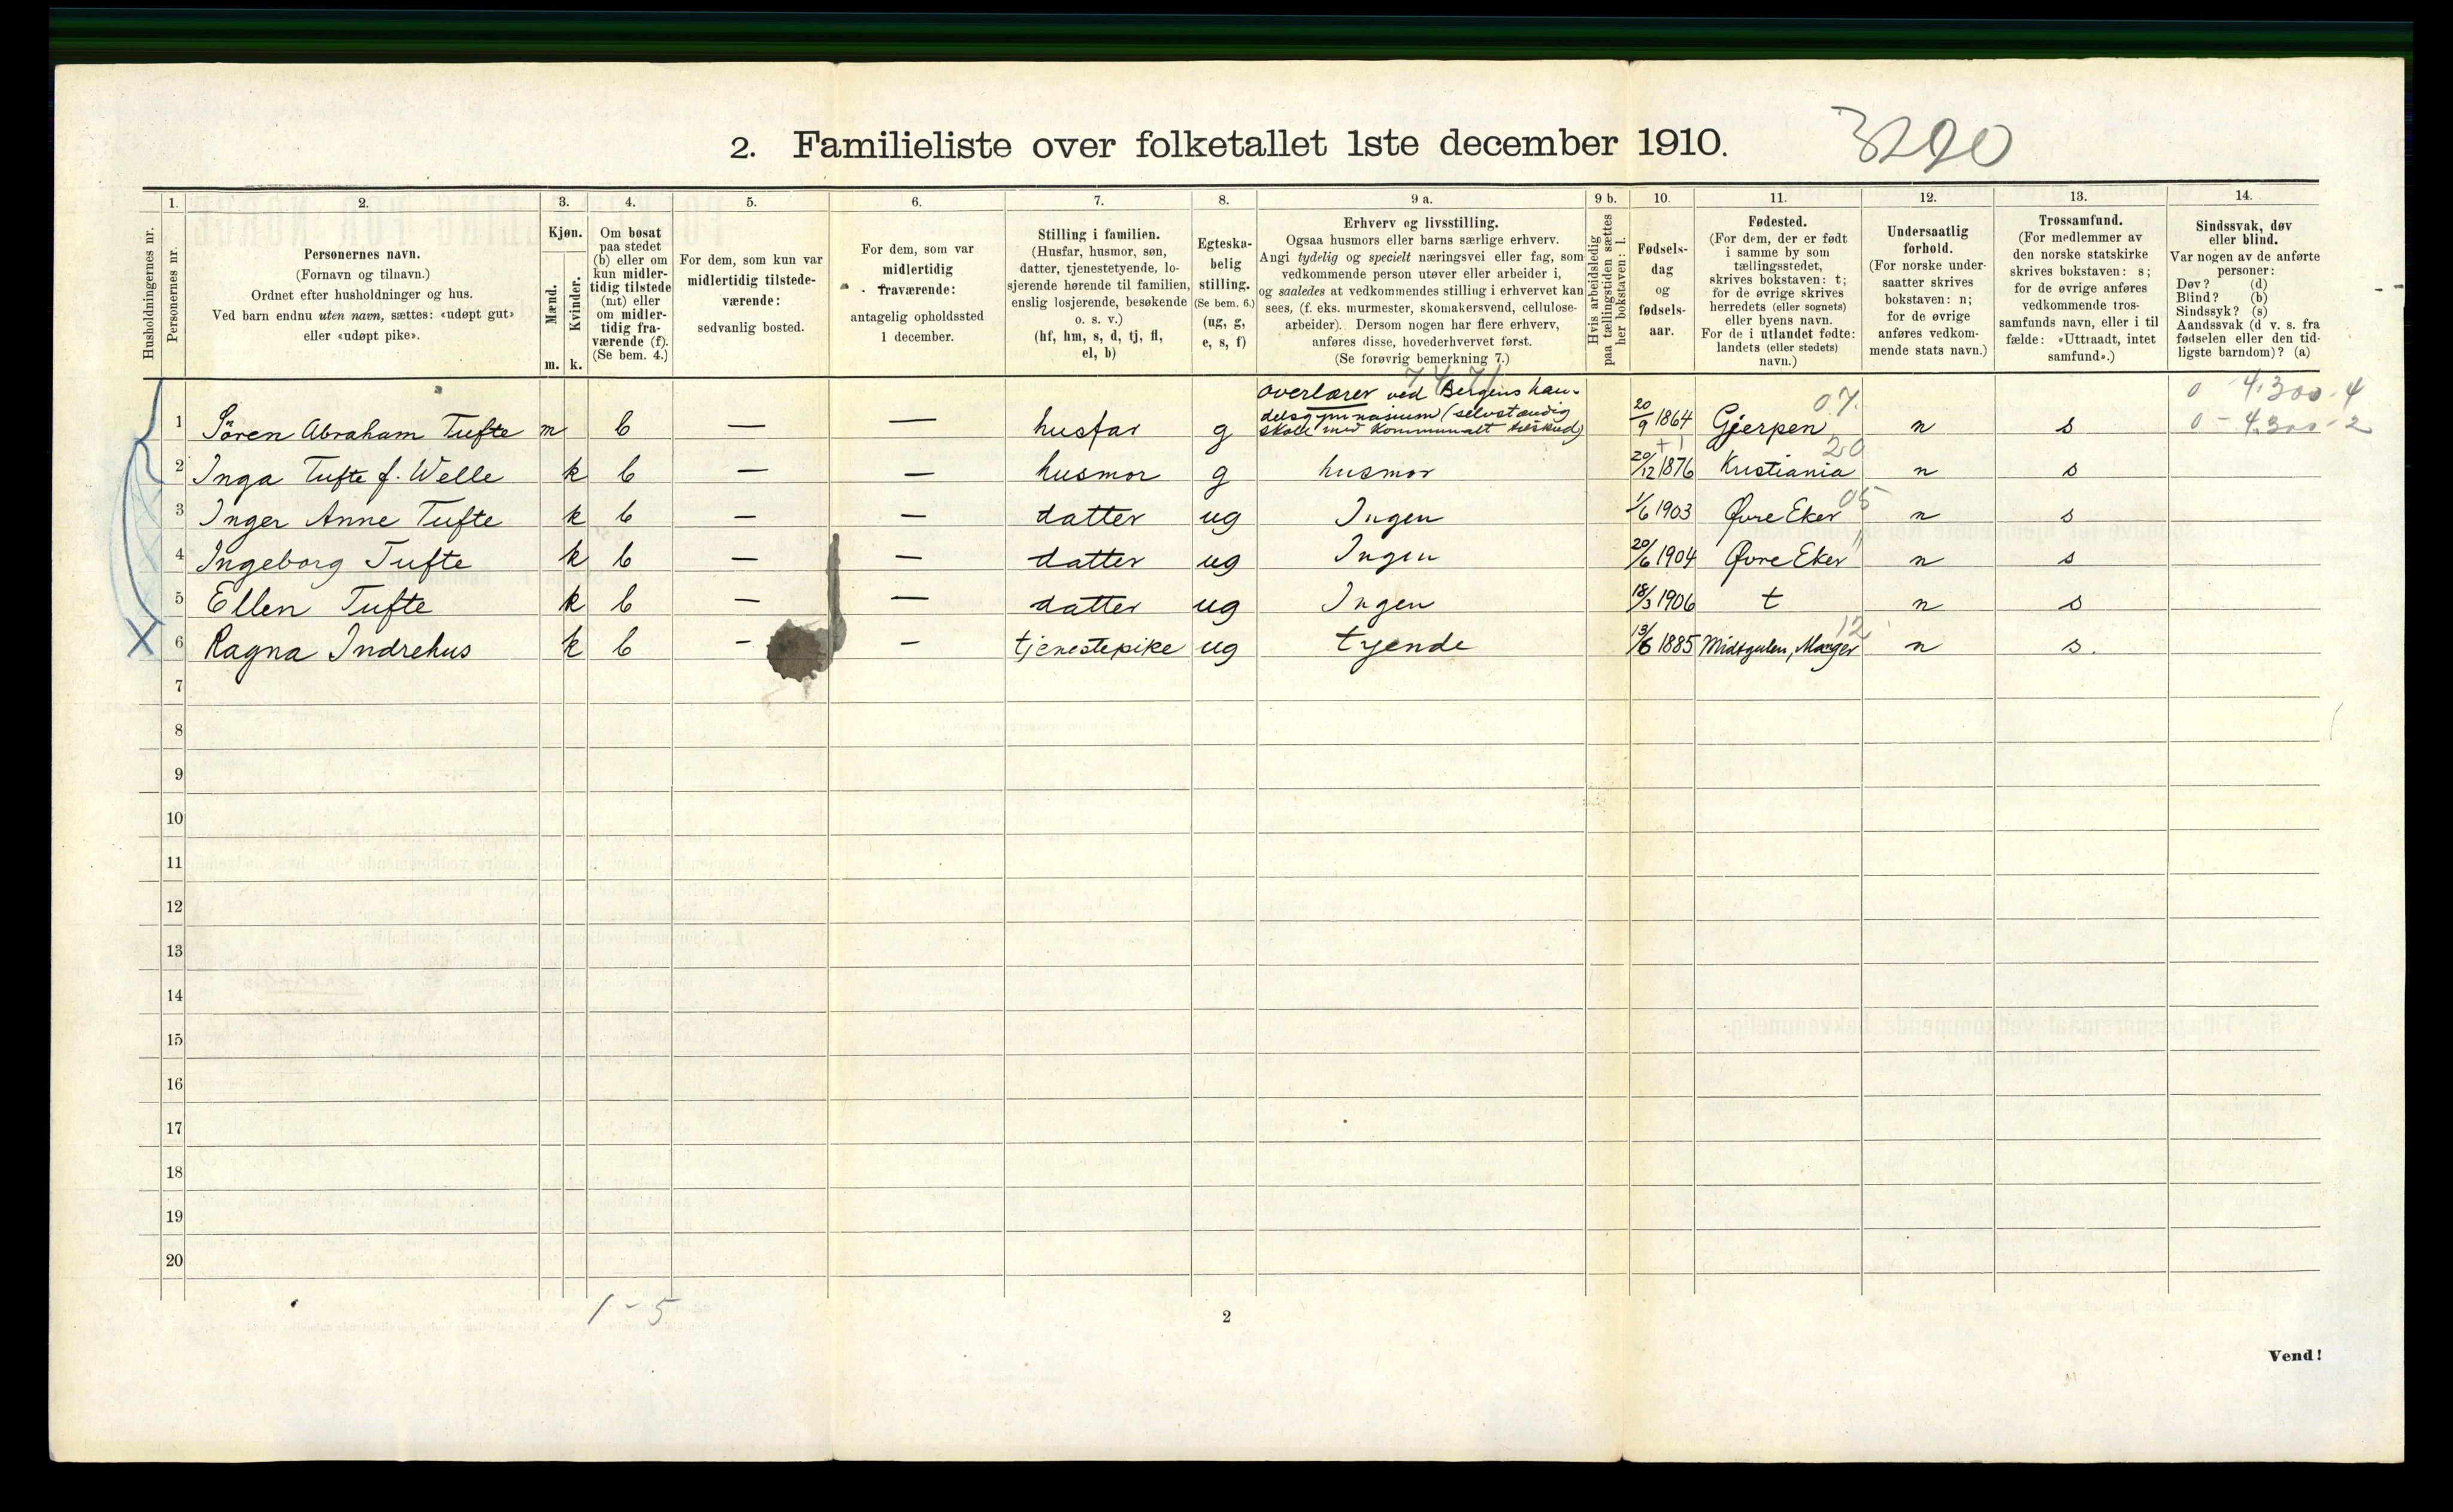 2. Familieliste over folketallet 1ste december 1910.
3290
1. 2. 3. 4. 5. 6. 7. 8. 9 a. 9 b. 10. 11. 12. 13. 14.
Husholdningernes nr.
Personernes nr.
Personernes navn.
(Fornavn og tilnavn.)
Ordnet efter husholdninger og hus.
Ved barn endnu uten navn, sættes: «udøpt gut»
eller «udøpt pike».
Kjøn.
Mænd.
Kvinder.
m. k.
Om bosat
paa stedet
(b) eller om
kun midler-
tidig tilstede
(mt) eller
om midler-
tidig fra-
værende (f).
(Se bem. 4.)
For dem, som kun var
midlertidig tilstede-
værende:
sedvanlig bosted.
For dem, som var
midlertidig
fraværende:
antagelig opholdssted
1 december.
Stilling i familien.
(Husfar, husmor, søn,
datter, tjenestetyende, lo-
sjerende hørende til familien,
enslig losjerende, besøkende
o. s. v.)
(hf, hm, s, d, tj, fl,
el, b)
Egteska-
belig
stilling.
(Se bem. 6.)
(ug, g,
e, s, f)
Erhverv og livsstilling.
Ogsaa husmors eller barns særlige erhverv.
Angi tydelig og specielt næringsvei eller fag, som
vedkommende person utøver eller arbeider i,
og saaledes at vedkommendes stilling i erhvervet kan
sees, (f. eks. murmester, skomakersvend, cellulose-
arbeider). Dersom nogen har flere erhverv,
anføres disse, hovederhvervet først.
(Se forøvrig bemerkning 7.)
Hvis arbeidsledig
paa tællingstiden sættes
her bokstaven: l.
Fødsels-
dag
og
fødsels-
aar.
Fødested.
(For dem, der er født
i samme by som
tællingsstedet,
skrives bokstaven: t;
for de øvrige skrives
herredets (eller sognets)
eller byens navn.
For de i utlandet fødte:
landets (eller stedets)
navn.)
Undersaatlig
forhold.
(For norske under-
saatter skrives
bokstaven: n;
for de øvrige
anføres vedkom-
mende stats navn.)
Trossamfund.
(For medlemmer av
den norske statskirke
skrives bokstaven: s;
for de øvrige anføres
vedkommende tros-
samfunds navn, eller i til
fælde: «Uttraadt, intet
samfund».)
Sindssvak, døv
eller blind.
Var nogen av de anførte
personer:
Døv? (d)
Blind? (b)
Sindssyk? (s)
Aandssvak (d v. s. fra
fødselen eller den tid-
ligste barndom)? (a)
7471
overlærer ved Bergens han-
delsgymnasium (selvstændig
skole med kommunalt tilskud)
07.
0 4.300-4
0 - 4.300-2
1 Sören Abraham Tufte m b — — husfar g 20/9 1864 Gjerpen n s
+1 20
2 Inga Tufte f. Welle k b — — husmor g husmor 20/12 1876 Kristiania n s
05
3 Inger Anne Tufte k b — — datter ug Ingen 1/6 1903 Øvre Eker n s
"
4 Ingeborg Tufte k b — — datter ug Ingen 20/6 1904 Øvre Eker n s
5 Ellen Tufte k b — — datter ug Ingen 18/3 1906 t n s
12
6 Ragna Indrehus k b - - tjenestepike ug tyende 13/6 1885 Midtgulen, Manger n s.
7
8
9
10
11
12
13
14
15
16
17
18
19
20
1-5
2
Vend!